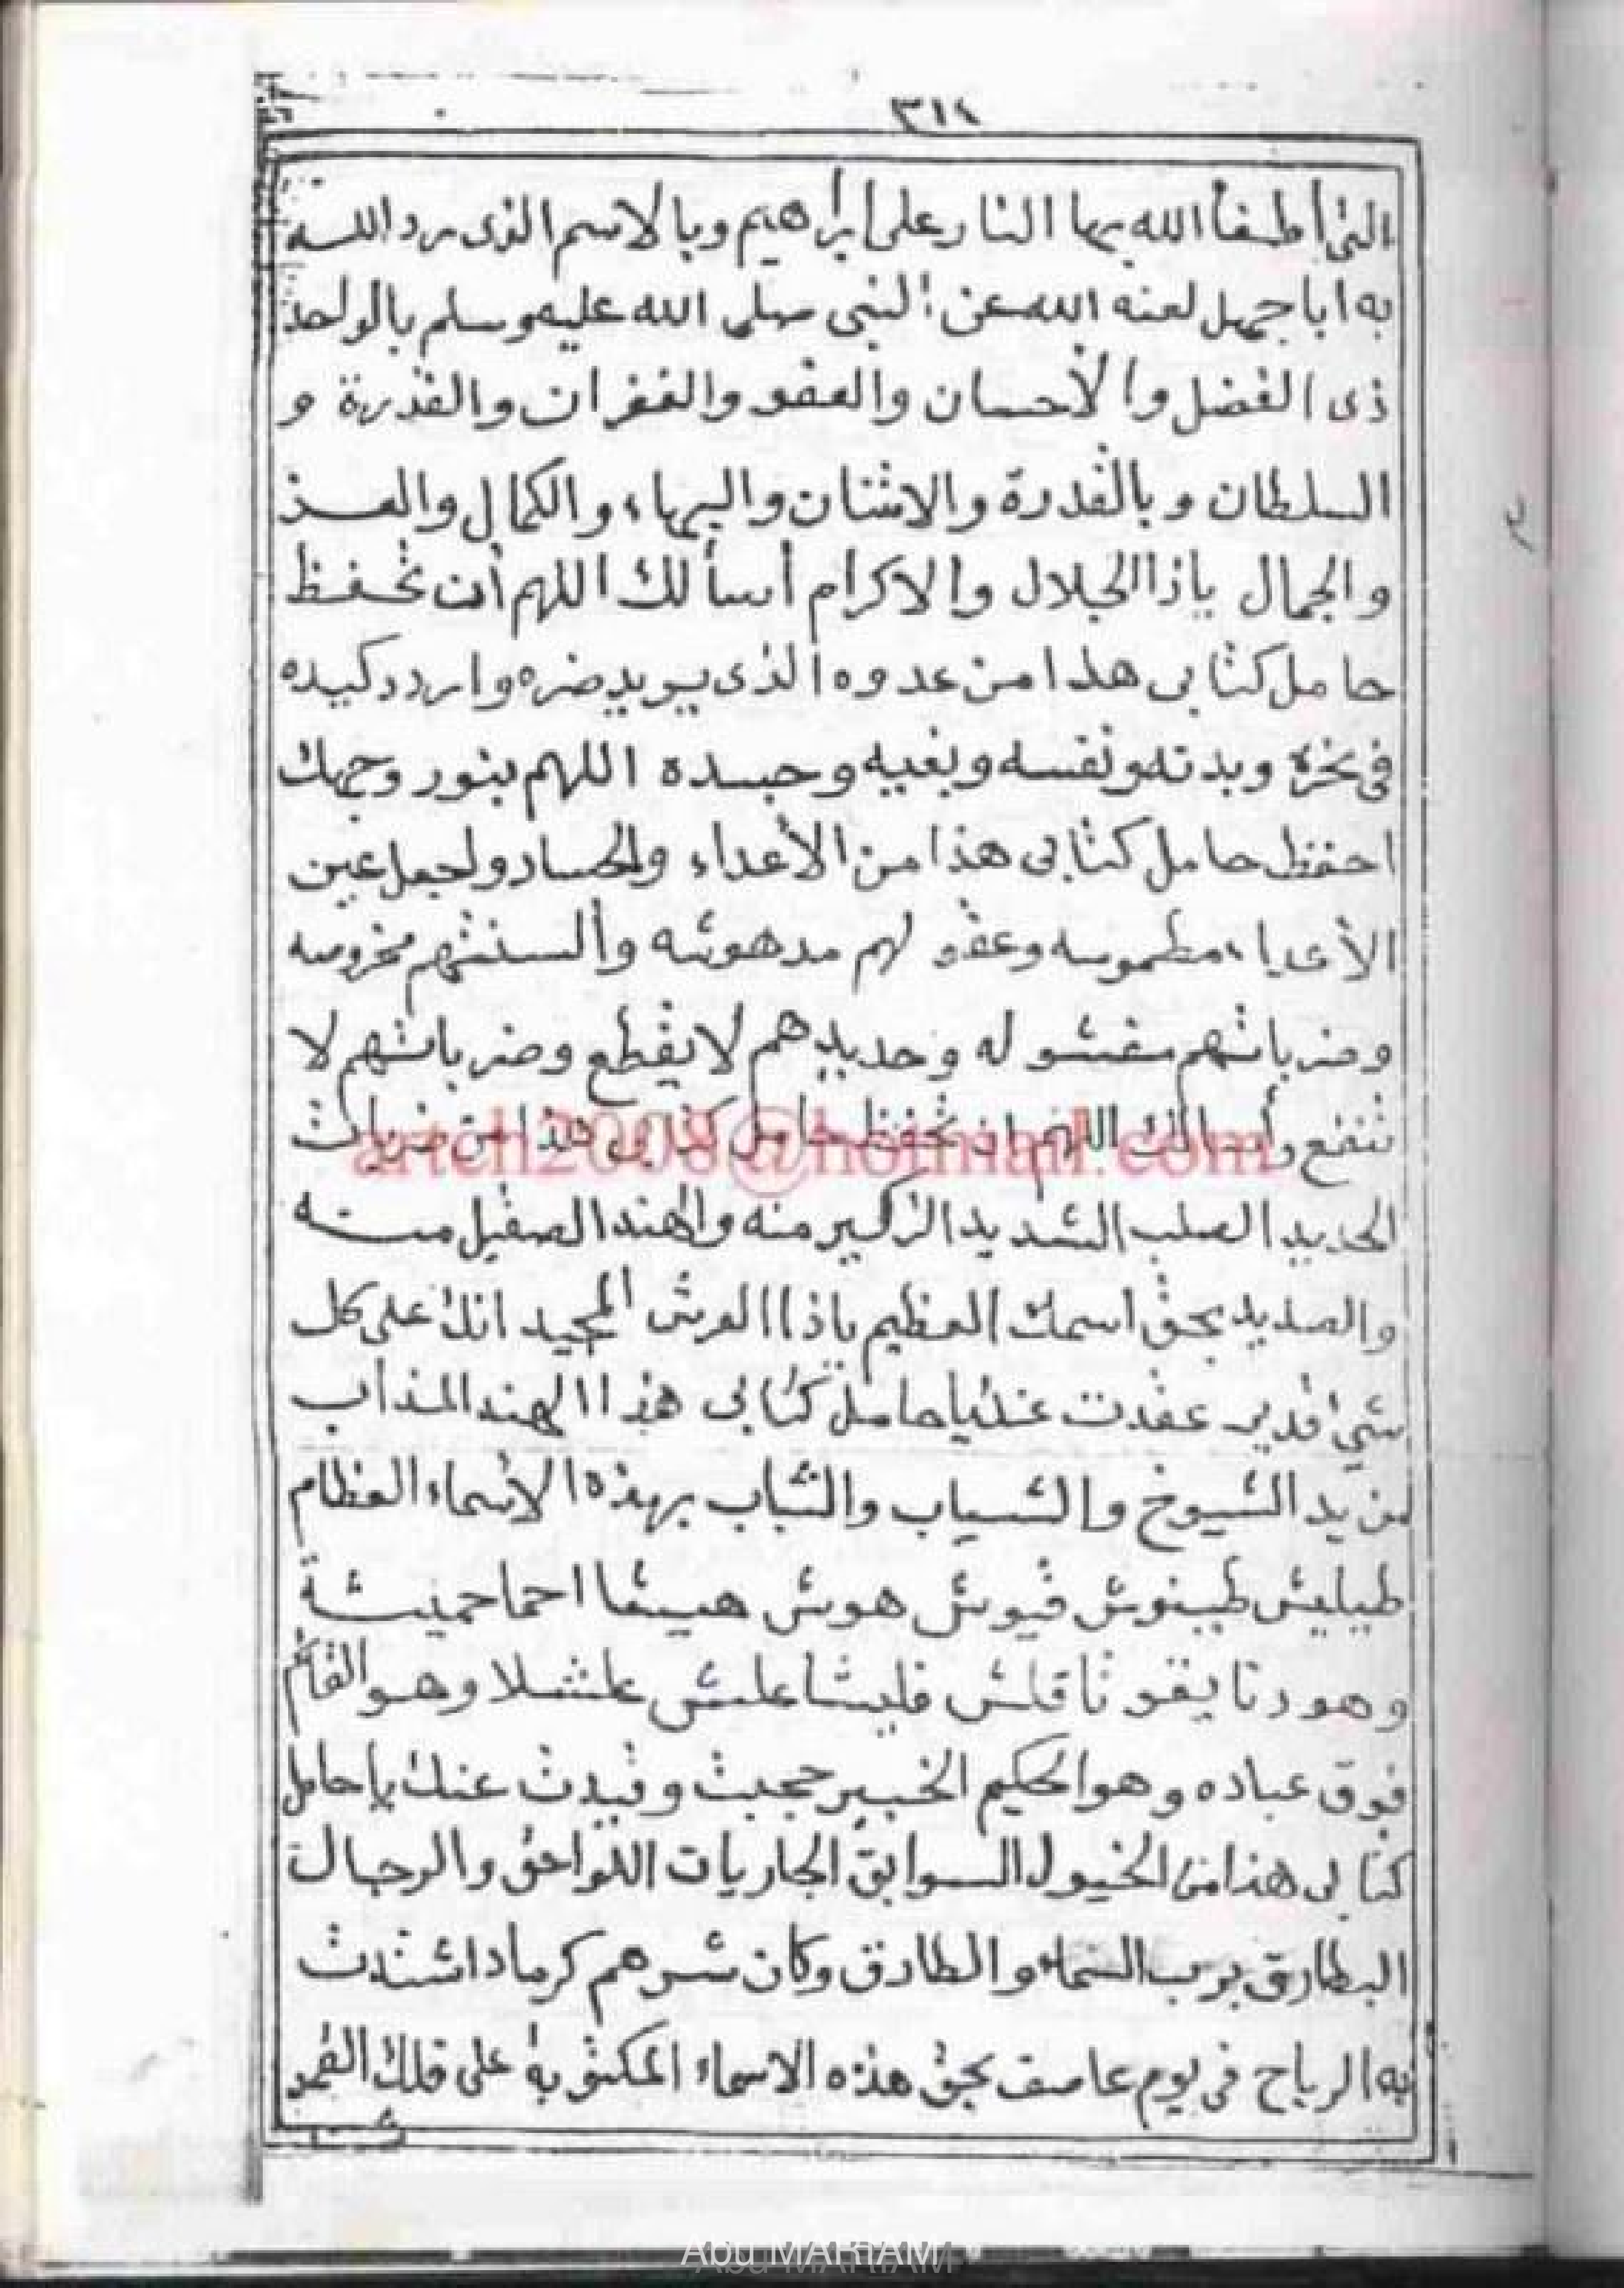 ٣١٤
التى أطفأ الله بها النار على إبراهيم وبالاسم الذى رد الله
به اباجهل لعنه الله عن النبى صلى الله عليه وسلم بالواحد
ذى الفضل والأحسان والعفو والغفران والقدرة و
السلطان وبالقدرة والامتنان والبهاء والكمال والعز
والجمال ياذا الجلال والاكرام أسألك اللهم أن تحفظ
حامل كتابى هذا من عدوه الذى يريد ضره واردد كيده
فى نحره وبدنه ونفسه وبغيه وحسده اللهم بنور وجهك
احفظ حامل كتابى هذا من الأعداء والحساد واجعل عين
الأعداء مطموسه وعقولهم مدهوشه وألسنتهم مخروسه
وضرباتهم مغشوله وحديدهم لايقطع وضرباتهم لا
تنفع وأسألك اللهم ان تحفظ حامل كتابى هذا من ضربات
artch2008@hotmail.com
الحديد الصلب الشديد الزكير منه والهند الصقيل منه
والصديد بحق اسمك العظيم ياذا العرش المجيد انك على كل
شئ قدير عقدت عنك ياحامل كتابى هذا الهند المذاب
من يد الشيوخ والشياب والشباب بهذه الأسماء العظام
طيليش طيبنوش فيوش هوش هيشا احما حميشة
وهو رنا يقونا قلش فليشا علش علشلا وهو القائم
فوق عباده وهو الحكيم الخبير حجبت وقيدت عنك ياحامل
كتابى هذا من الخيول السوابق الجاريات اللواحق والرجال
البطارق برب السماء والطارق وكان شرهم كرماد اشتدت
به الرياح فى يوم عاصف بحق هذه الاسماء المكتوبة على فلك القمر
Abu MARIAM